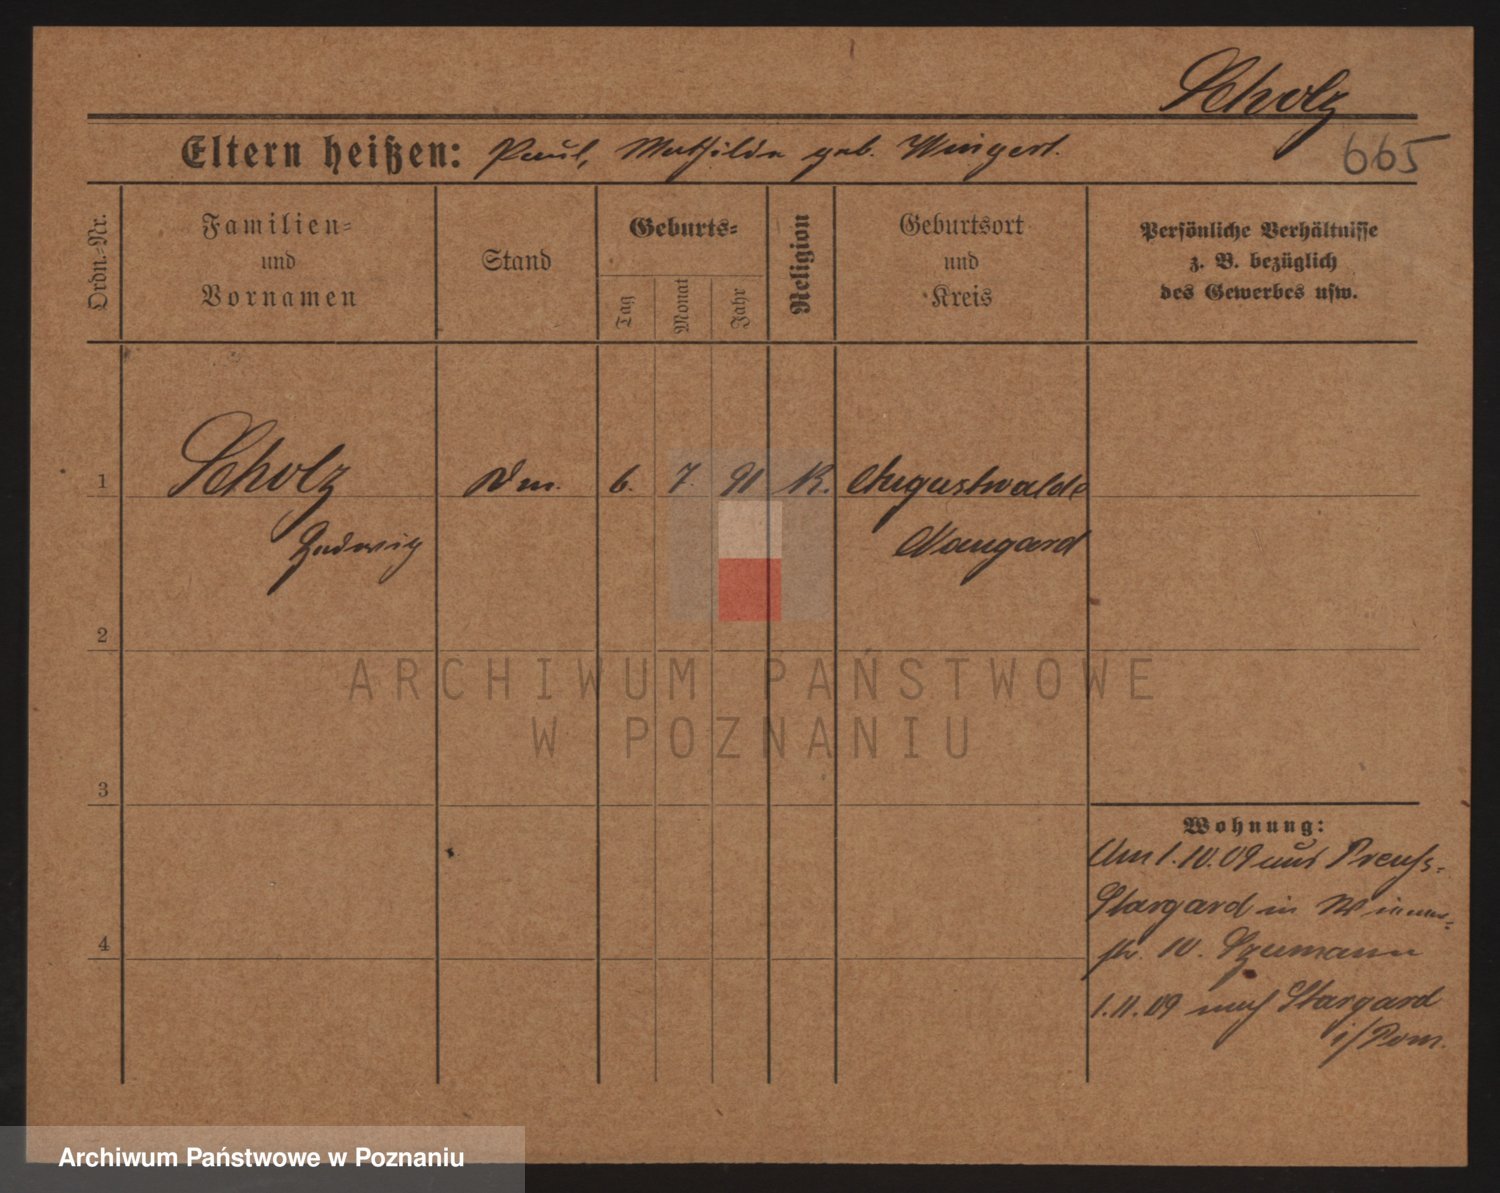 Scholz
665
Eltern heißen: Paul, Mathilde geb. Weigert.
Ordn.-Nr.
Familien-
und
Vornamen
Stand
Geburts-
Tag
Monat
Jahr
Religion
Geburtsort
und
Kreis
Persönliche Verhältnisse
z. B. bezüglich
des Gewerbes usw.
1 Scholz 6. 7. 91 K. Augustwalde
Hedwig Naugard
2
ARCHIWUM PAŃSTWOWE
W POZNANIU
3
Wohnung:
Am 1.10.09 aus Preuß-
Stargard in
4
str. 10. Szumann
1.11.09 nach Stargard
i/Pom.
Archiwum Państwowe w Poznaniu